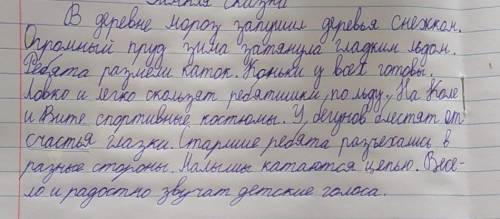 Зимняя сказка
В деревне мороз запушил деревья снежком.
Огромный пруд зима затянула гладким льдом.
Ребята размели каток. Коньки у всех готовы.
Ловко и легко скользят ребятишки по льду. На Коле
и Вите спортивные костюмы. У бегунов блестят от
счастья глазки. Старшие ребята разъехались в
разные стороны. Малыши катаются цепью. Весе-
ло и радостно звучат детские голоса.